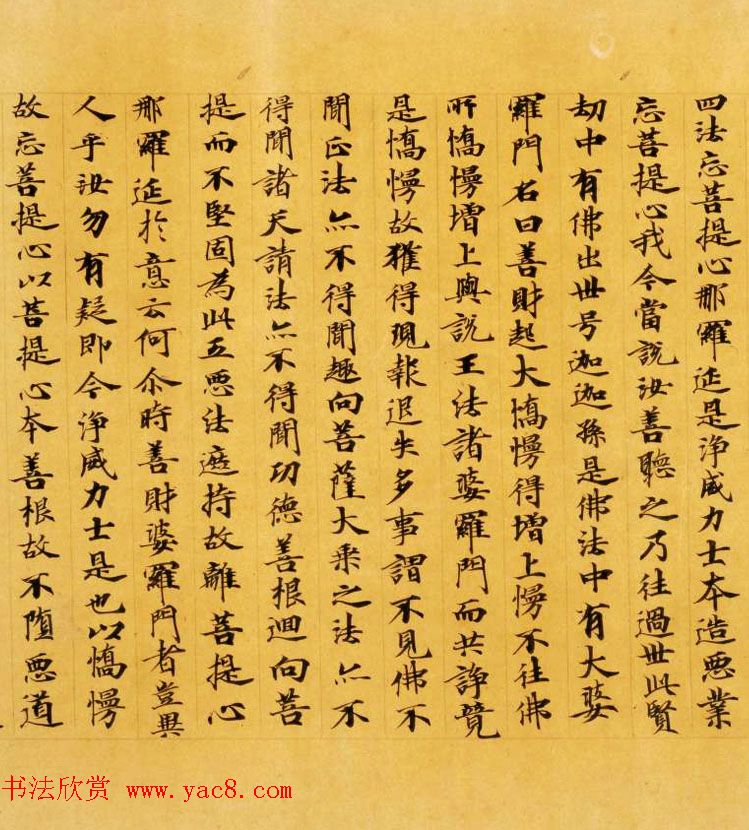 四法忘菩提心那羅延是淨威力士本造惡業
忘菩提心我今當說汝善聽之乃往過世此賢
劫中有佛出世号迦迦孫是佛法中有大婆
羅門名曰善財起大憍慢得增上慢不往佛
所憍慢增上興說王法諸婆羅門而共諍競
是憍慢故獲得現報退失多事謂不見佛不
聞正法亦不得聞趣向菩薩大乘之法亦不
得聞諸天請法亦不得聞功德善根迴向菩
提而不堅固為此五惡法遮持故離菩提心
那羅延於意云何尒時善財婆羅門者豈異
人乎汝勿有疑即今淨威力士是也以憍慢
故忘菩提心以菩提心本善根故不墮惡道
书法欣赏 www.yac8.com